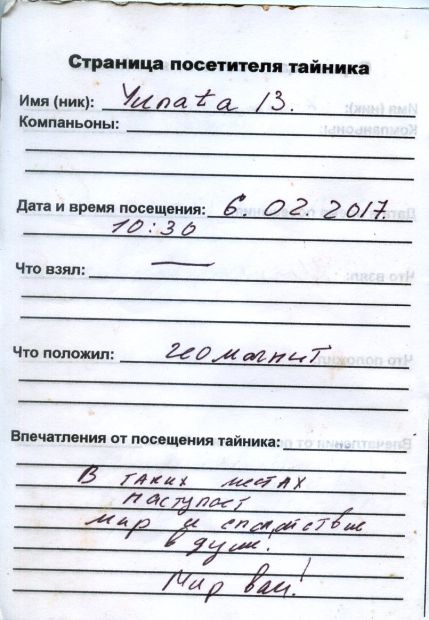 Страница посетителя тайника
Имя (ник): Yunata 13.
Компаньоны:
Дата и время посещения: 6.02.2017.
10:30
Что взял: —
Что положил: геомагнит
Впечатления от посещения тайника:
В таких местах
наступает
мир и спокойствие
в душе.
Мир вам!